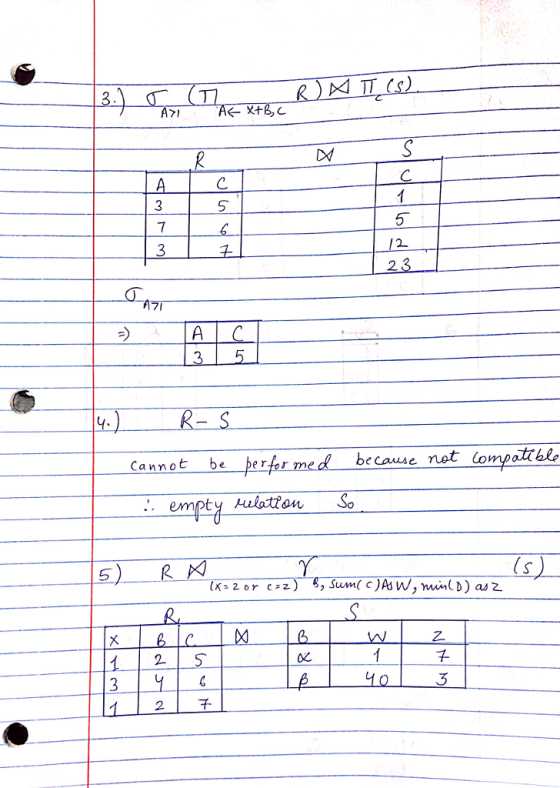 3.) σ A>1 (Π A← X+B,C R) ⋈ Π c (S).
R ⋈ S
A C
3 5
7 6
3 7
C
1
5
12
23
σ A>1
⇒) A C
3 5
4.) R - S
cannot be performed because not compatible
∴ empty relation So.
5) R ⋈ (X=2 or C=Z) γ B, Sum(C) AS W, min(D) as Z (S)
R ⋈ S
X B C
1 2 5
3 4 6
1 2 7
B W Z
α 1 7
β 40 3